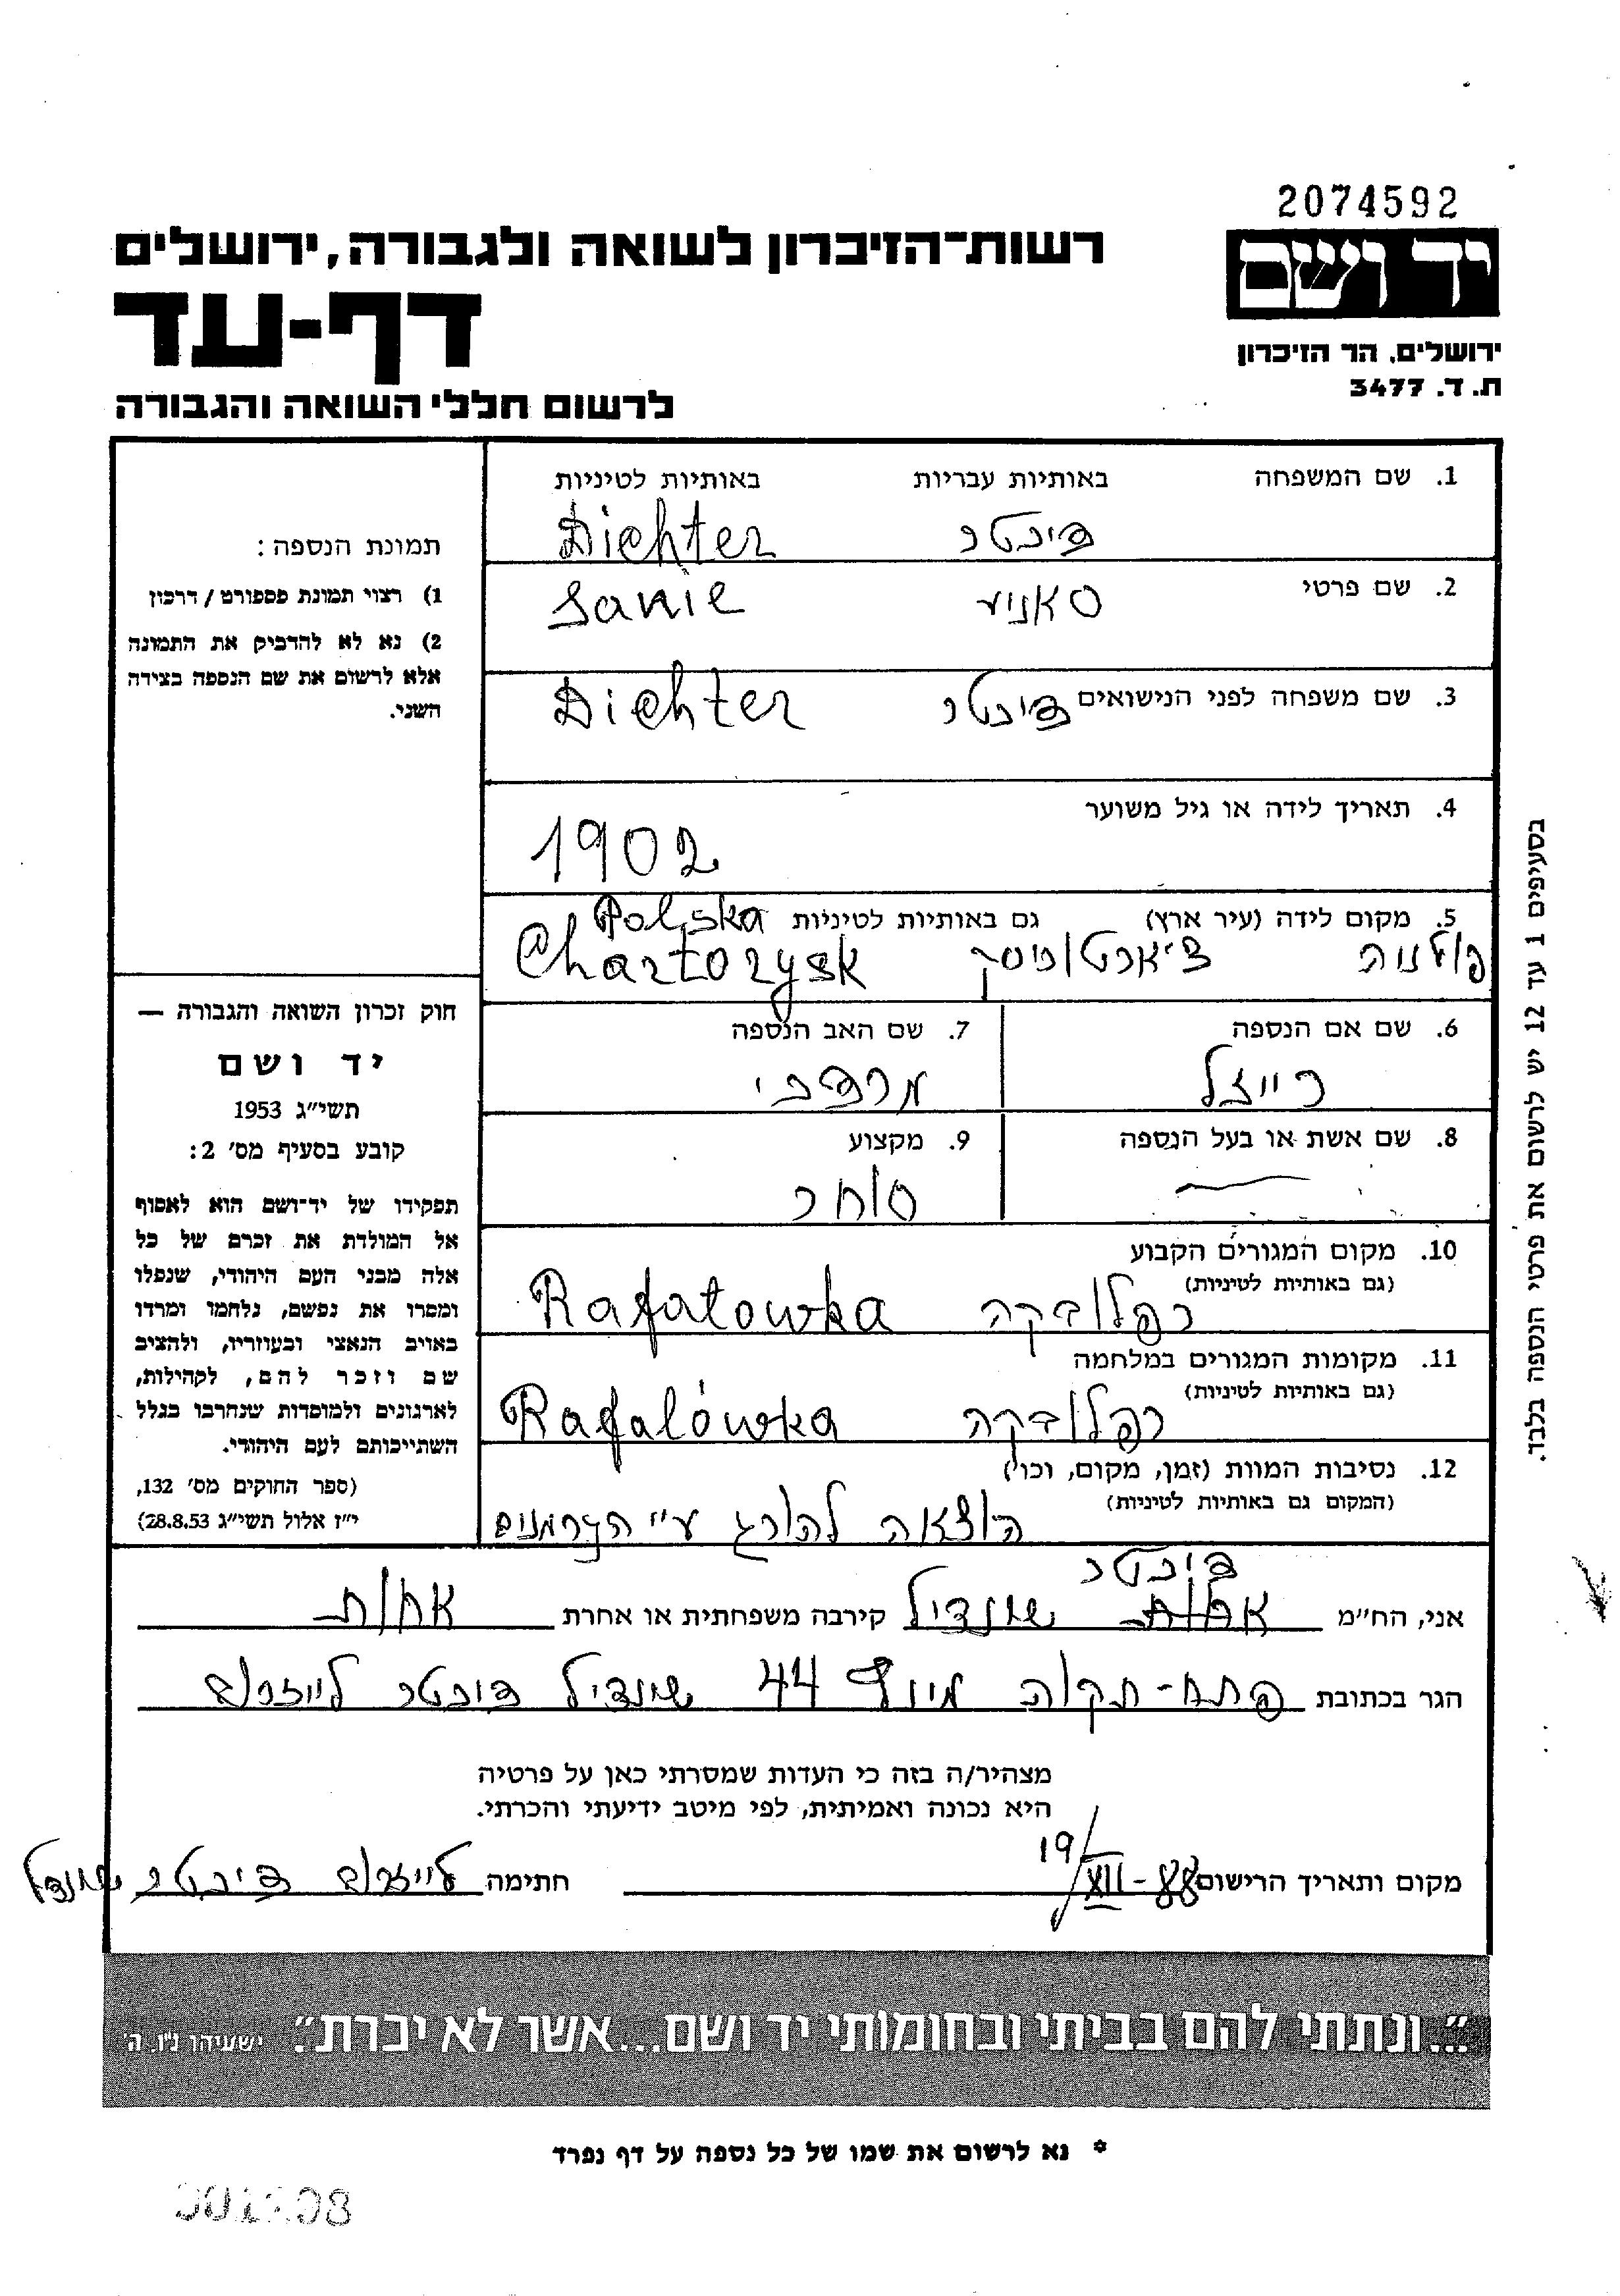 2074592
יד ושם
ירושלים, הר הזיכרון
ת. ד. 3477
רשות־הזיכרון לשואה ולגבורה, ירושלים
דף-עד
לרשום חללי השואה והגבורה
1. שם המשפחה באותיות עבריות באותיות לטיניות
דיכטר Dichter
2. שם פרטי
סאניע Sanie
3. שם משפחה לפני הנישואים דיכטר Dichter
4. תאריך לידה או גיל משוער
1902
5. מקום לידה (עיר ארץ) גם באותיות לטיניות Polska
פולניה Chartorysk
6. שם אם הנספה
רייזל
7. שם האב הנספה
מרדכי
8. שם אשת או בעל הנספה
9. מקצוע
סוחר
10. מקום המגורים הקבוע
(גם באותיות לטיניות)
רפלובקה Rafałowka
11. מקומות המגורים במלחמה
(גם באותיות לטיניות)
רפלובקה Rafalówka
12. נסיבות המוות (זמן, מקום, וכו')
(המקום גם באותיות לטיניות)
הוצאה להורג ע"י הגרמנים
תמונת הנספה:
1) רצוי תמונת פספורט / דרכון
2) נא לא להדביק את התמונה
אלא לרשום את שם הנספה בצידה
השני.
חוק זכרון השואה והגבורה —
יד ושם
תשי"ג 1953
קובע בסעיף מס' 2:
תפקידו של יד־ושם הוא לאסוף
אל המולדת את זכרם של כל
אלה מבני העם היהודי, שנפלו
ומסרו את נפשם, נלחמו ומרדו
באויב הנאצי ובעוזריו, ולהציב
שם וזכר להם, לקהילות,
לארגונים ולמוסדות שנחרבו בגלל
השתייכותם לעם היהודי.
(ספר החוקים מס' 132,
י"ז אלול תשי"ג 28.8.53)
בסעיפים 1 עד 12 יש לרשום את פרטי הנספה בלבד.
דיכטר
אני, הח"מ אחות שיינדיל קירבה משפחתית או אחרת אחות
הגר בכתובת פתח-תקוה 44 שיינדיל דיכטר
מצהיר/ה בזה כי העדות שמסרתי כאן על פרטיה
היא נכונה ואמיתית, לפי מיטב ידיעתי והכרתי.
מקום ותאריך הרישום 19/XII-88 חתימה דיכטר
"...ונתתי להם בביתי ובחומותי יד ושם...אשר לא יכרת". ישעיהו נ"ו, ה'
* נא לרשום את שמו של כל נספה על דף נפרד